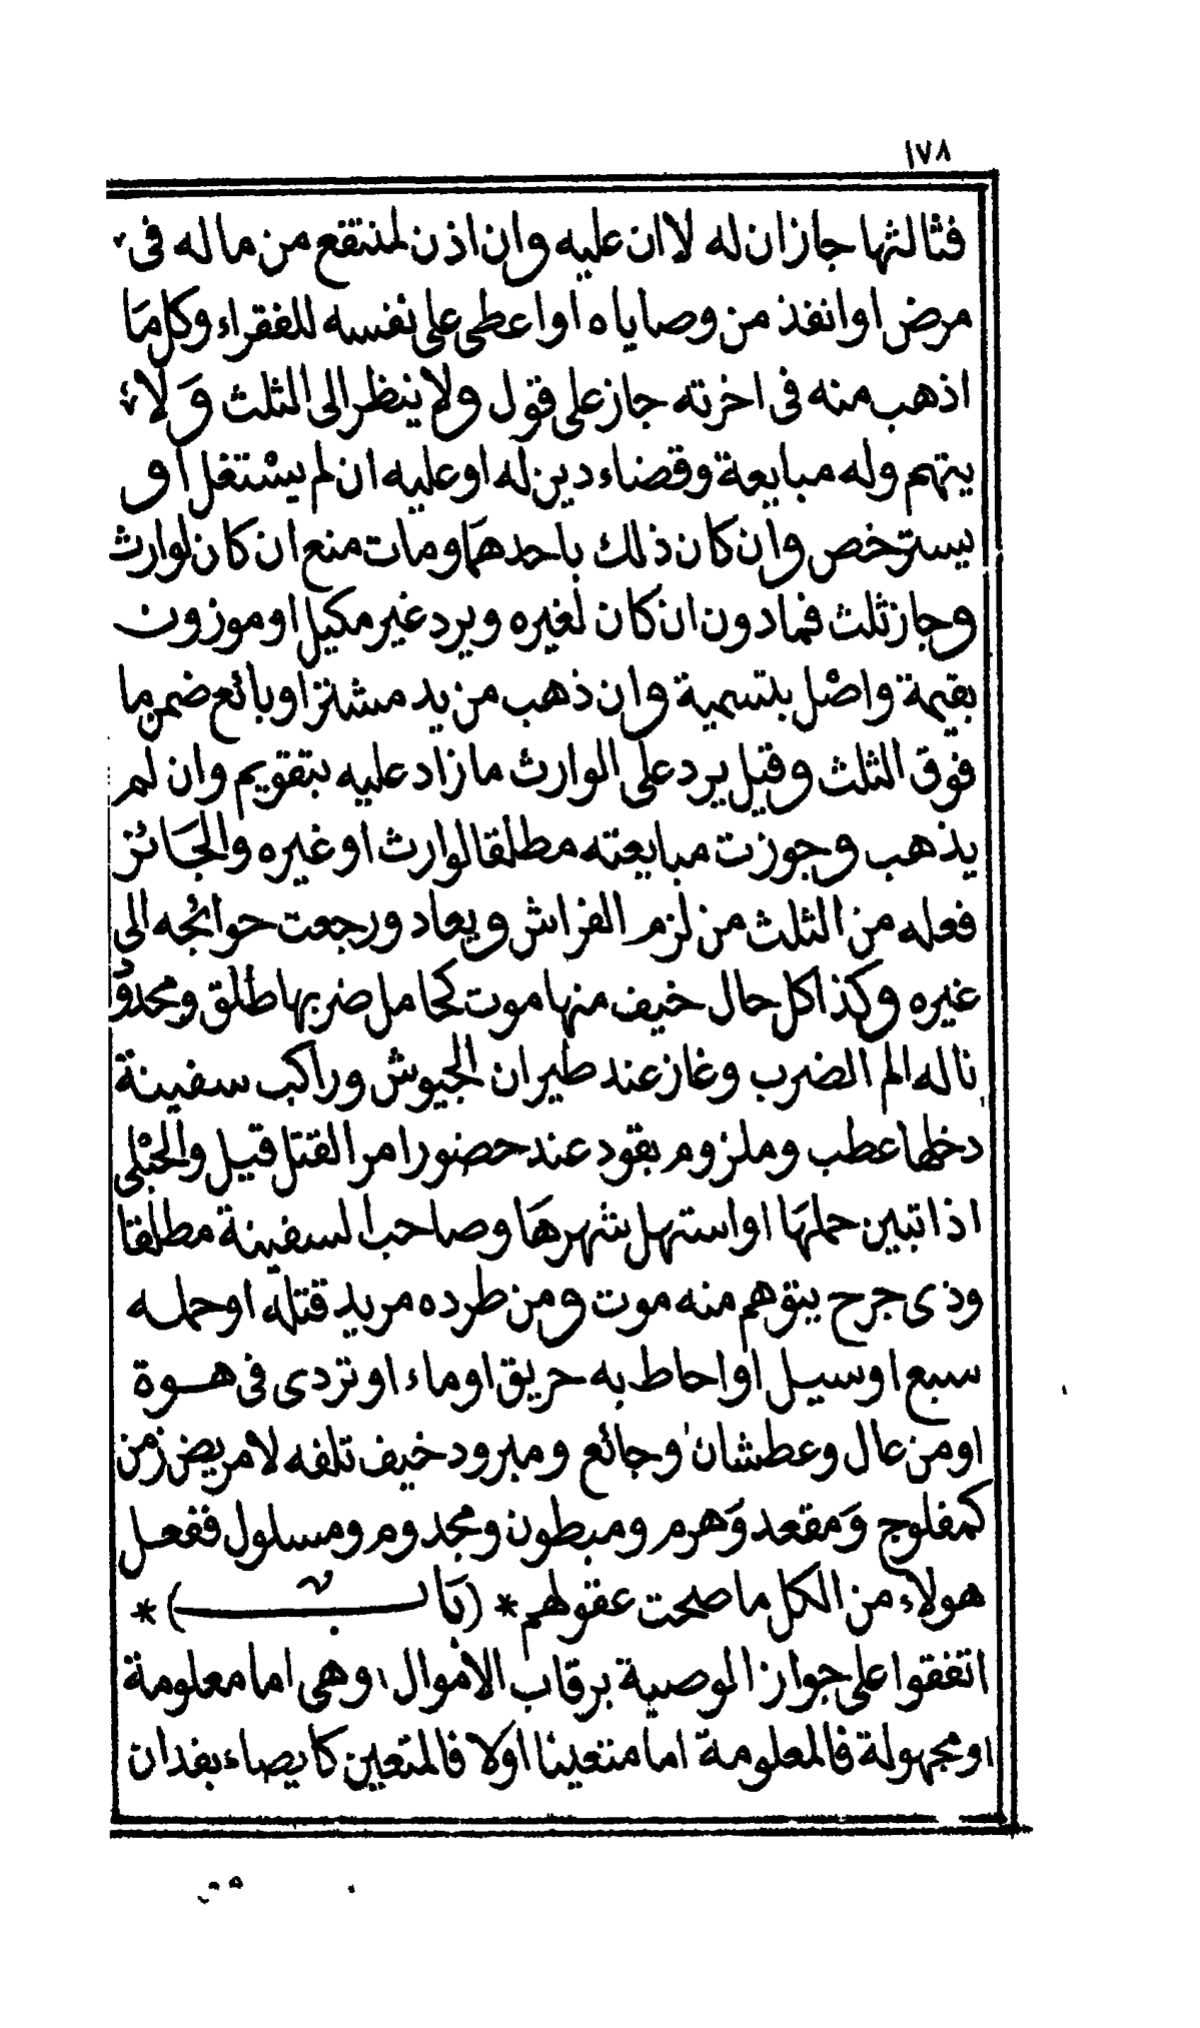 ١٧٨
فثالثها جاز ان له لا ان عليه وان اذن لمنتقع من ماله فى
مرض او انفذ من وصاياه او اعطى على نفسه للفقراء وكل مَا
اذهب منه فى اخرته جاز على قول ولا ينظر الى الثلث وَلا
يتهم وله مبايعة وقضاء دين له او عليه ان لم يسْتغل او
يسترخص وان كان ذلك باحدهمَا ومات منع ان كان لوارث
وجاز ثلث فما دون ان كان لغيره ويرد غير مكيل او موزون
بقيمة واصْل بتسمية وان ذهب من يد مشتر او بائع ضمن ما
فوق الثلث وقيل يرد على الوارث ما زاد عليه بتقويم وان لم
يذهب وجوزت مبايعته مطلقا لوارث او غيره والجَائز
فعله من الثلث من لزم الفراش ويعاد ورجعت حوائجه الى
غيره وكذا كل حال خيف منها موت كحامل ضربها طلق ومحدود
ناله الم الضرب وغاز عند طيران الجيوش وراكب سفينة
دخلها عطب وملزوم بقود عند حضور امر القتل قيل والحبْلى
اذا تبين حملهَا او استهل شهرهَا وصاحب السفينة مطلقا
وذى جرح يتوهم منه موت ومن طرده مريد قتله او حمله
سبع او سيل او احاط به حريق او ماء او تردى فى هوة
او من عال وعطشان وجائع ومبرود خيف تلفه لا مريض زمن
كمفلوج وَمقعد وَهرم ومبطون ومجدوم ومسلول ففعل
هولاء من الكل ما صحت عقولهم * (بَاب) *
اتفقوا على جواز الوصية برقاب الأموال وهى اما معلومة
او مجهولة فالمعلومة اما متعينا اوَلا فالمتعين كايصاء بفدان